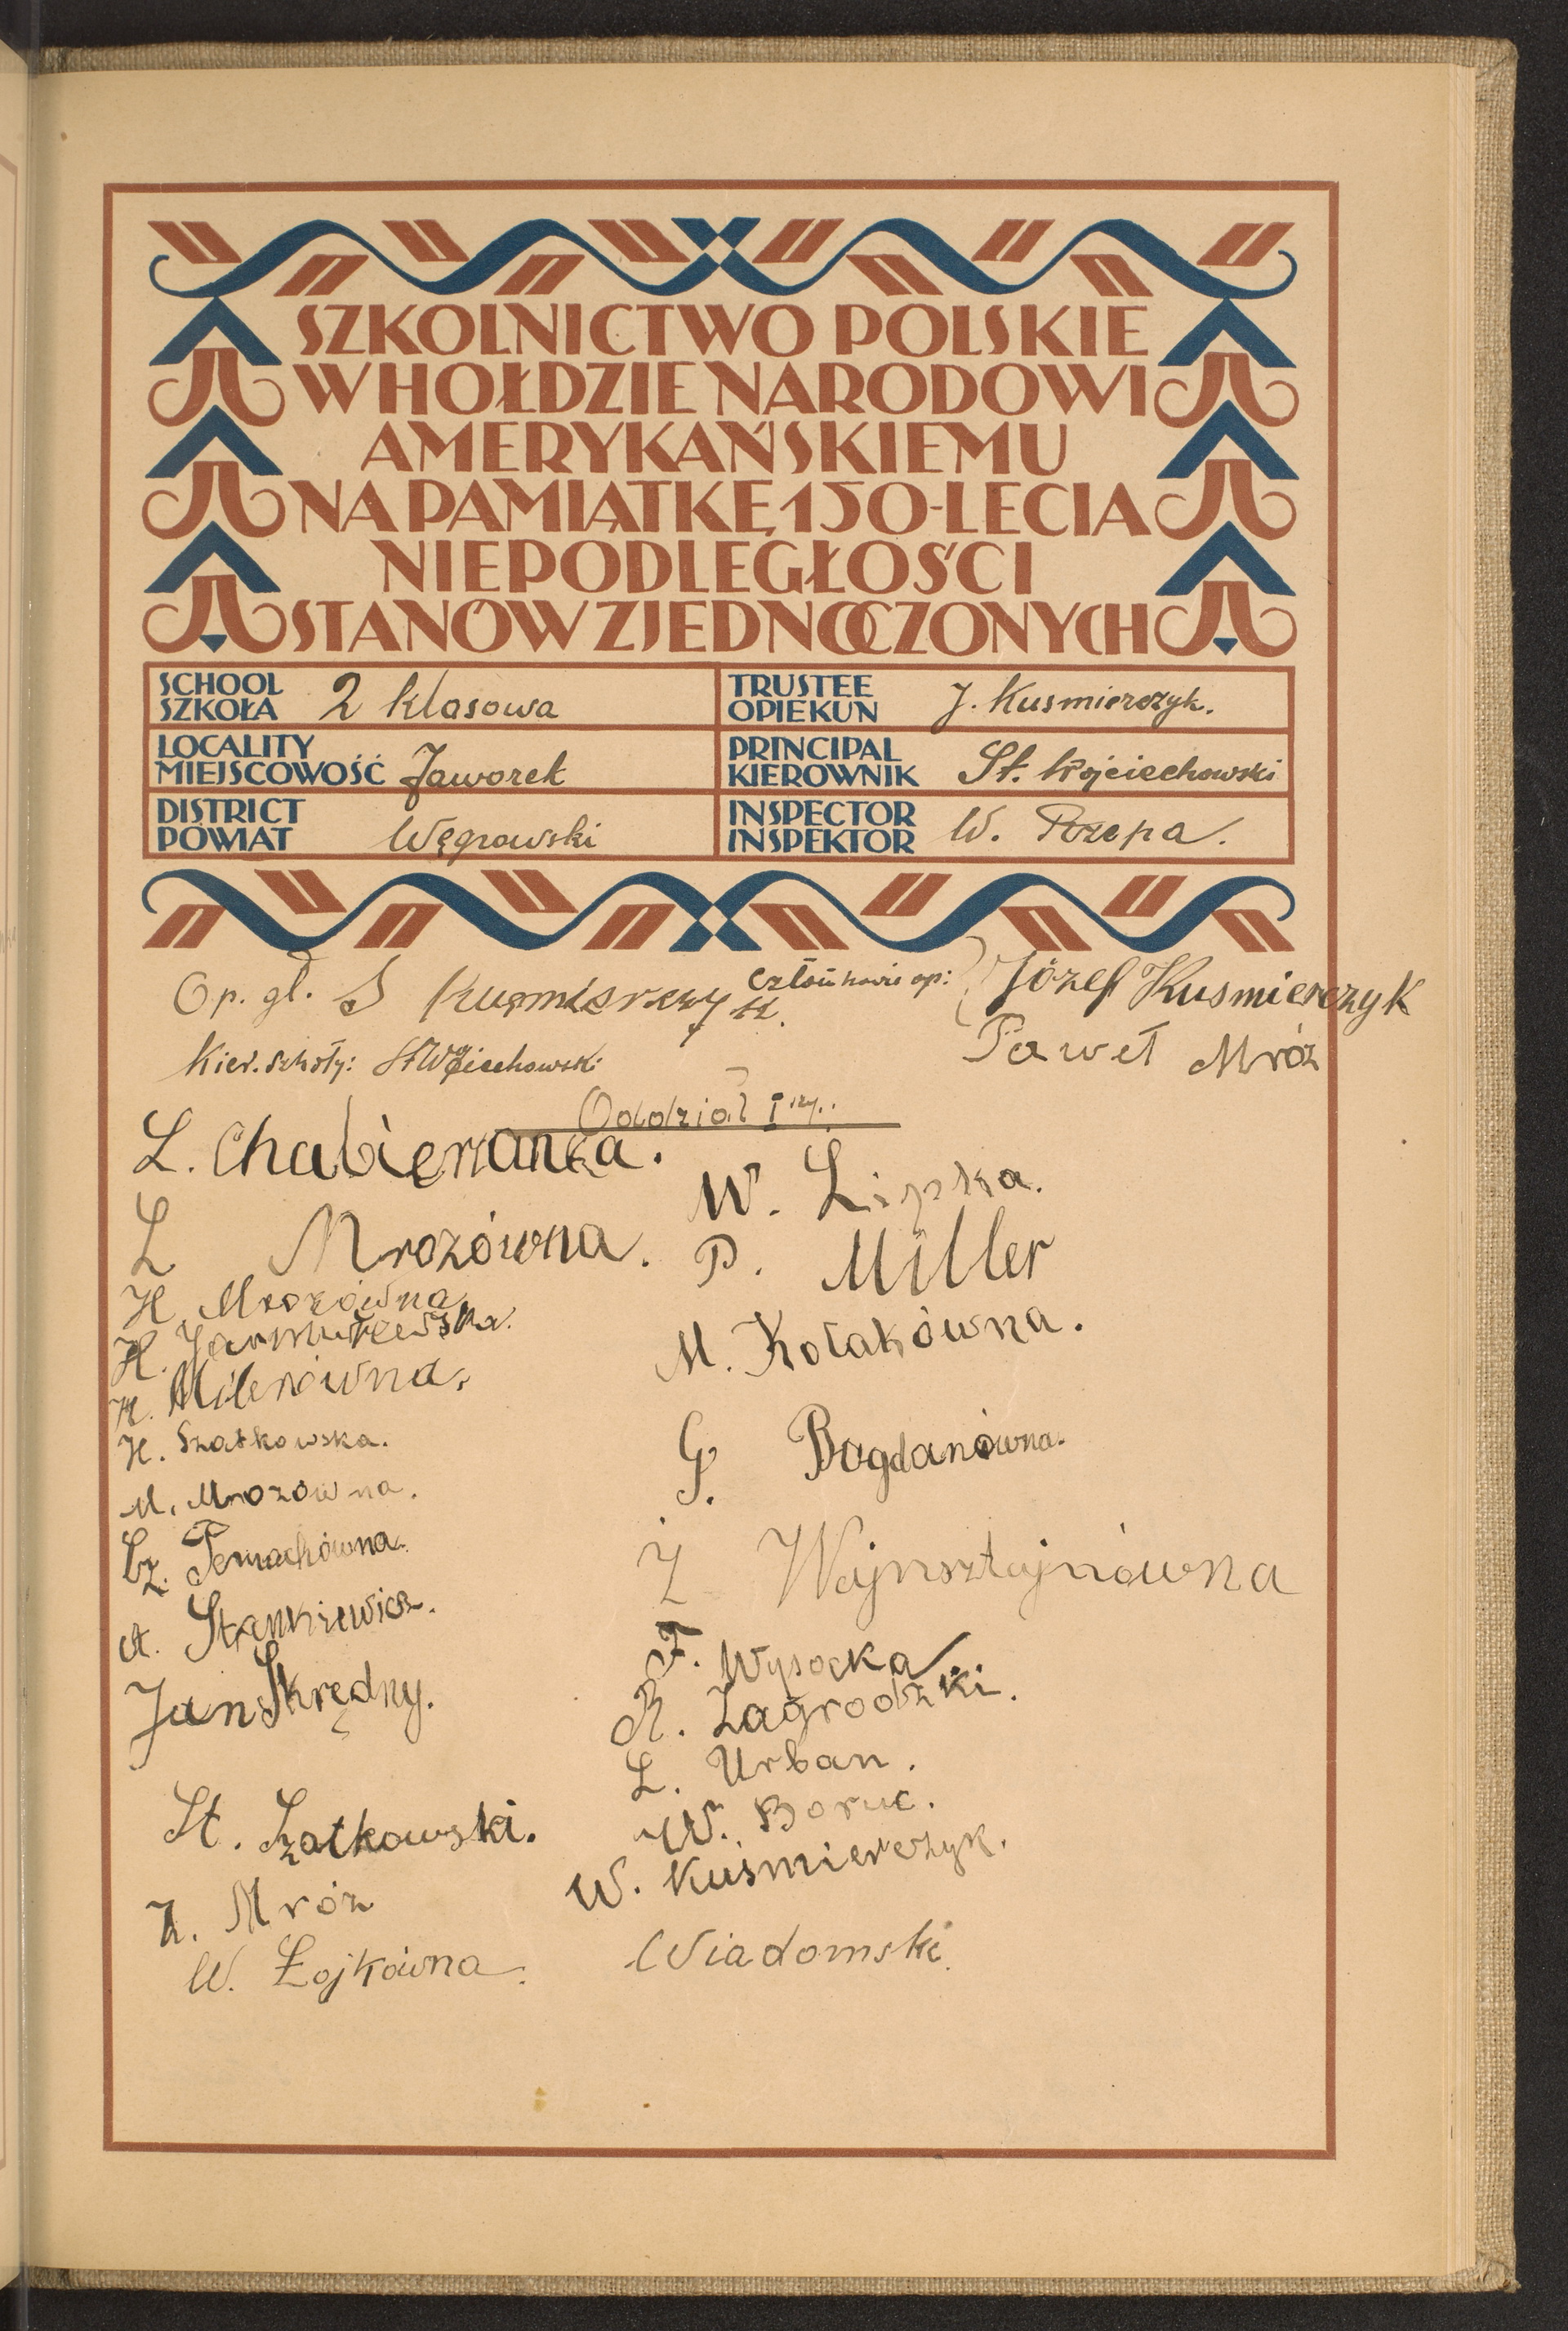 SZKOLNICTWO POLSKIE
W HOŁDZIE NARODOWI
AMERYKAŃSKIEMU
NA PAMIĄTKĘ 150-LECIA
NIEPODLEGŁOŚCI
STANÓW ZJEDNOCZONYCH
SCHOOL
SZKOŁA 2 klasowa
LOCALITY
MIEJSCOWOŚĆ Jaworek
DISTRICT
POWIAT Węgrowski
TRUSTEE
OPIEKUN J. Kusmierczyk.
PRINCIPAL
KIEROWNIK St. Wojciechowski
INSPECTOR
INSPEKTOR W. Rzepa.
Op. gł. J Kusmierczyk.
Członkowie op: Józef Kusmierczyk
Paweł Mróz
Kier. szkoły: St Wojciechowski
Oddział I szy.:
L. Chabieranka.
L Mrozówna.
H. Mrozówna
H. Jarmurzewska.
H. Milerówna.
H. Szatkowska.
M. Mrozówna.
Cz. Temachówna.
A. Stankiewicz.
Jan Skrędny.
St. Szatkowski.
Z. Mróz
W. Łojkówna.
W. Lipka.
P. Miller
M. Kołakówna.
G. Bogdanówna.
Ż Wajnsztajnówna
F. Wysocka.
R. Zagrodzki.
L. Urban.
W. Boruc.
W. Kuśmierczyk.
Wiadomski.